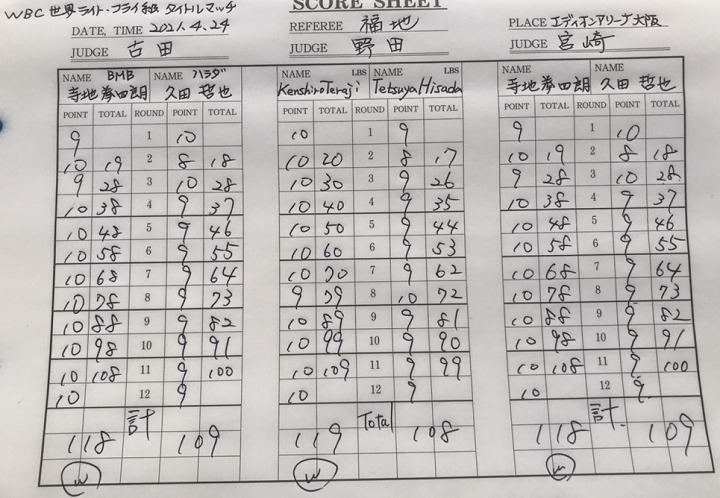 WBC 世界ライト・フライ級 タイトルマッチ
SCORE SHEET
DATE, TIME 2021.4.24
REFEREE 福地
PLACE エディオンアリーナ大阪
JUDGE 吉田
JUDGE 野田
JUDGE 宮崎
NAME BMB NAME ハラダ
NAME LBS NAME LBS
NAME LBS NAME LBS
寺地拳四朗 久田 哲也
Kenshiro Teraji Tetsuya Hisada
寺地拳四朗 久田 哲也
POINT TOTAL ROUND POINT TOTAL
POINT TOTAL ROUND POINT TOTAL
POINT TOTAL ROUND POINT TOTAL
9 1 10
10 1 9
9 1 10
10 19 2 8 18
10 20 2 8 17
10 19 2 8 18
9 28 3 10 28
10 30 3 9 26
9 28 3 10 28
10 38 4 9 37
10 40 4 9 35
10 38 4 9 37
10 48 5 9 46
10 50 5 9 44
10 48 5 9 46
10 58 6 9 55
10 60 6 9 53
10 58 6 9 55
10 68 7 9 64
10 70 7 9 62
10 68 7 9 64
10 78 8 9 73
9 79 8 10 72
10 78 8 9 73
10 88 9 9 82
10 89 9 9 81
10 88 9 9 82
10 98 10 9 91
10 99 10 9 90
10 98 10 9 91
10 108 11 9 100
10 109 11 9 99
10 108 11 9 100
10 12 9
10 12 9
10 12 9
計
Total
計
118 109
119 108
118 109
W
W
W